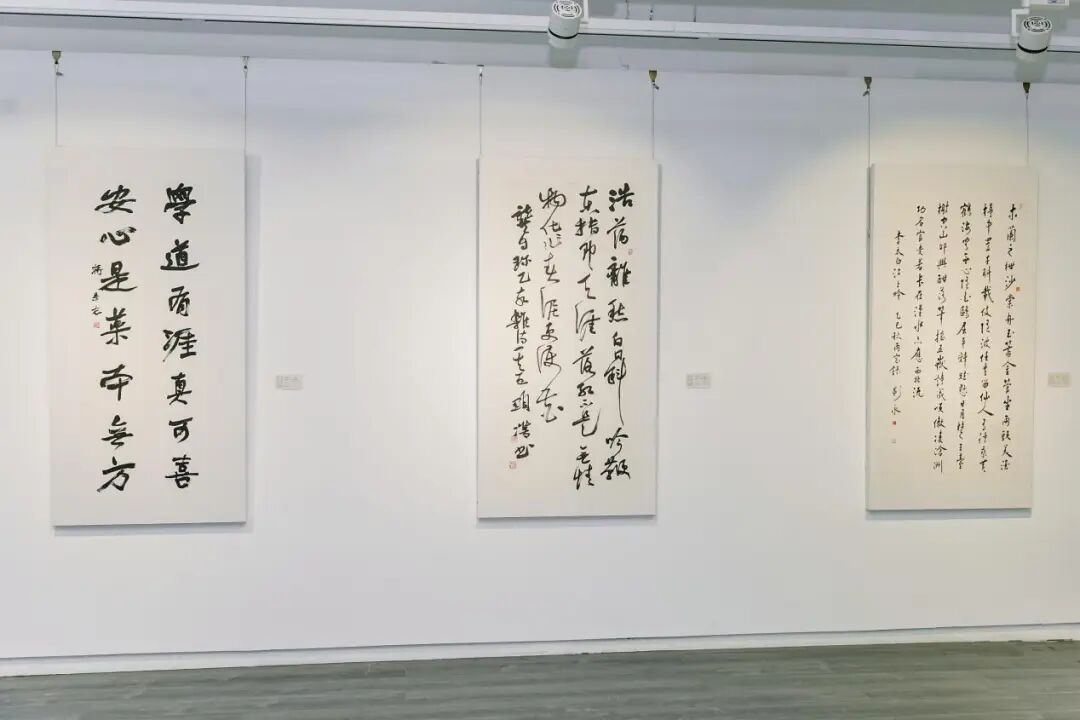 學道有涯真可喜
安心是藥本無方
浩蕩離愁白日斜吟鞭
東指即天涯落紅不是無情
物化作春泥更護花
龔自珍己亥雜詩其五
木蘭之枻沙棠舟玉簫金管坐兩頭美酒
樽中置千斛載妓隨波任去留仙人有待乘黃
鶴海客無心隨白鷗屈平辭賦懸日月楚王臺
榭空山丘興酣落筆搖五嶽詩成笑傲凌滄洲
功名富貴若長在漢水亦應西北流
李太白江上吟 乙巳秋雨窗錄